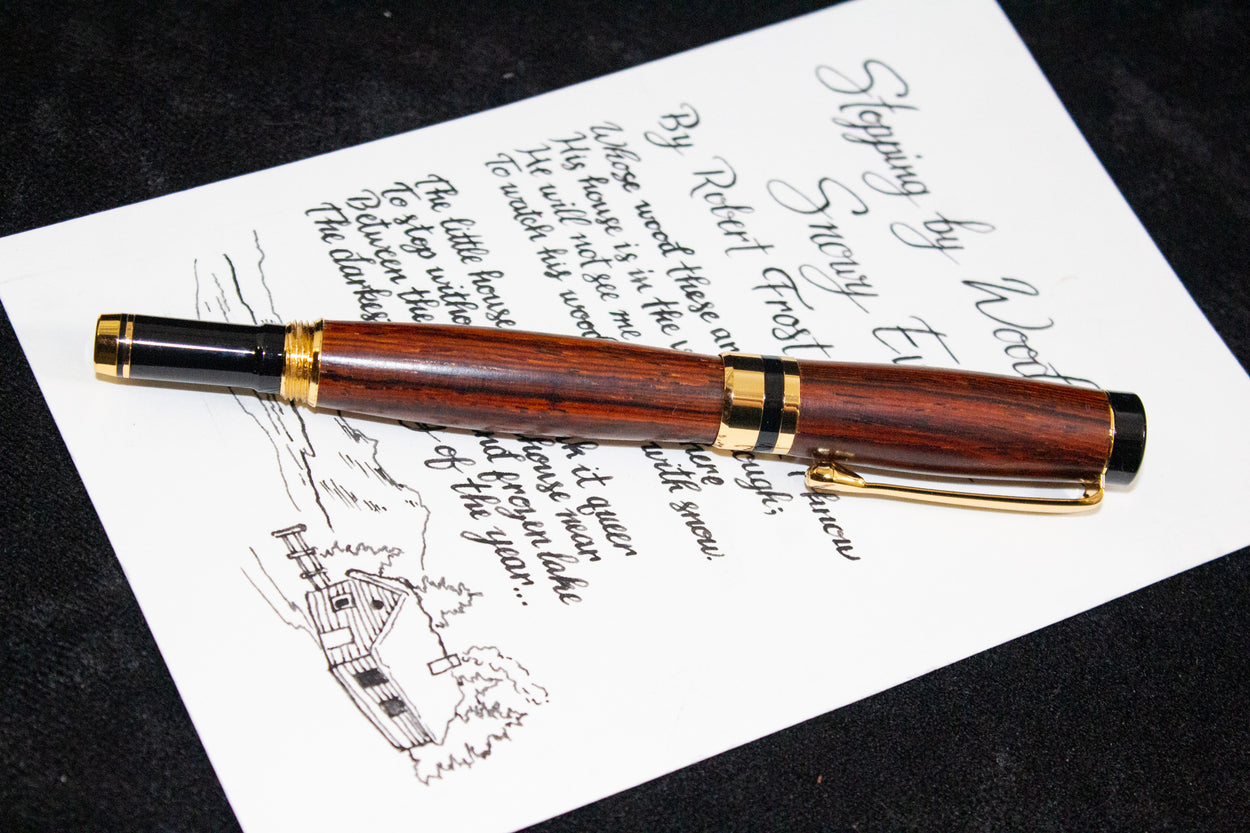 Stopping by Wood
Snowy Ev
By Robert Frost
Whose wood these ar know
His house is in the v ough;
He will not see me here
To watch his wood with snow.
The little house k it queer
To stop witho house near
Between the nd frozen lake
The darkes of the year...